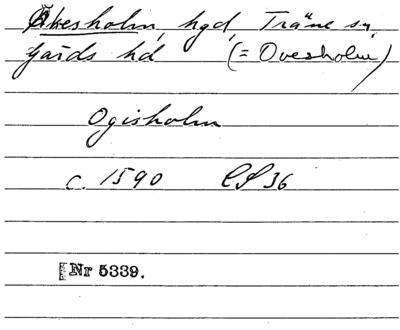 Åkesholm, hgd, Träne sn,
Gärds hd (= Ovesholm)
Ogisholm
c. 1590 CS 36
[Nr 5339.